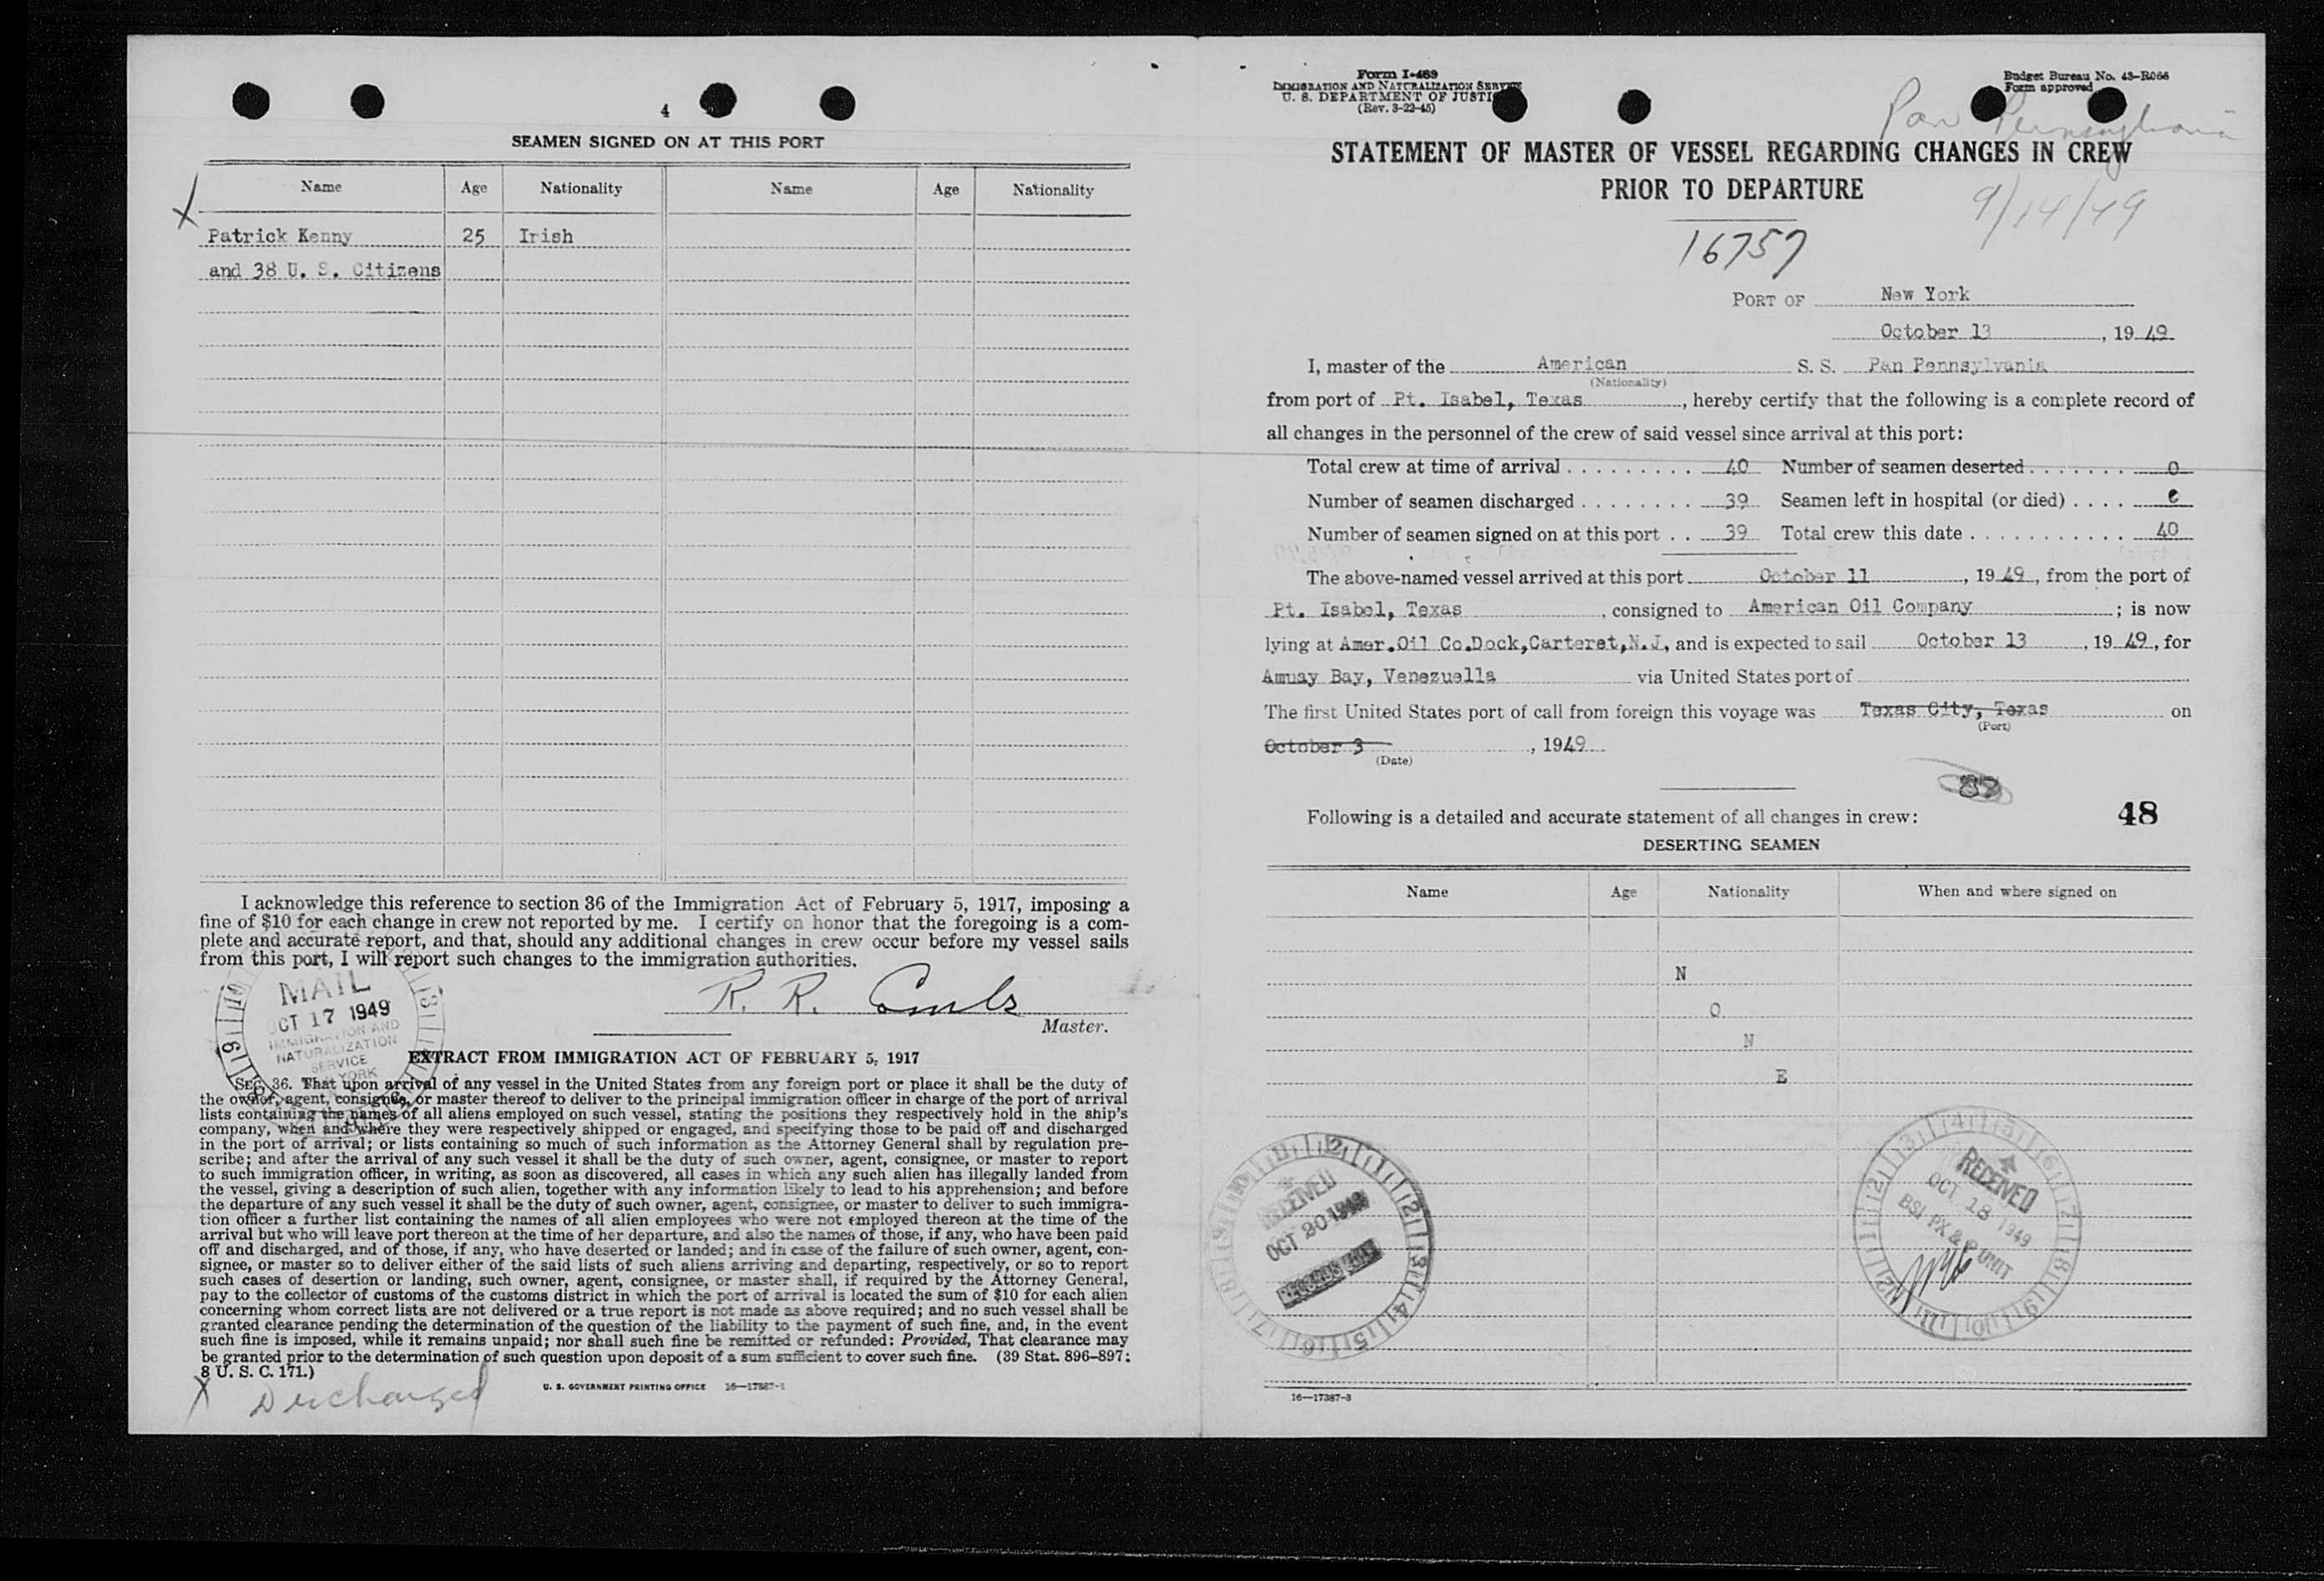 4
SEAMEN SIGNED ON AT THIS PORT
Name Age Nationality Name Age Nationality
X
Patrick Kenny 25 Irish
and 38 U. S. Citizens
I acknowledge this reference to section 36 of the Immigration Act of February 5, 1917, imposing a
fine of $10 for each change in crew not reported by me. I certify on honor that the foregoing is a com-
plete and accurate report, and that, should any additional changes in crew occur before my vessel sails
from this port, I will report such changes to the immigration authorities.
R. R.
Master.
MAIL
OCT 17 1949
IMMIGRATION AND
NATURALIZATION
SERVICE
YORK
EXTRACT FROM IMMIGRATION ACT OF FEBRUARY 5, 1917
SEC. 36. That upon arrival of any vessel in the United States from any foreign port or place it shall be the duty of
the owner, agent, consignee, or master thereof to deliver to the principal immigration officer in charge of the port of arrival
lists containing the names of all aliens employed on such vessel, stating the positions they respectively hold in the ship's
company, when and where they were respectively shipped or engaged, and specifying those to be paid off and discharged
in the port of arrival; or lists containing so much of such information as the Attorney General shall by regulation pre-
scribe; and after the arrival of any such vessel it shall be the duty of such owner, agent, consignee, or master to report
to such immigration officer, in writing, as soon as discovered, all cases in which any such alien has illegally landed from
the vessel, giving a description of such alien, together with any information likely to lead to his apprehension; and before
the departure of any such vessel it shall be the duty of such owner, agent, consignee, or master to deliver to such immigra-
tion officer a further list containing the names of all alien employees who were not employed thereon at the time of the
arrival but who will leave port thereon at the time of her departure, and also the names of those, if any, who have been paid
off and discharged, and of those, if any, who have deserted or landed; and in case of the failure of such owner, agent, con-
signee, or master so to deliver either of the said lists of such aliens arriving and departing, respectively, or so to report
such cases of desertion or landing, such owner, agent, consignee, or master shall, if required by the Attorney General,
pay to the collector of customs of the customs district in which the port of arrival is located the sum of $10 for each alien
concerning whom correct lists are not delivered or a true report is not made as above required; and no such vessel shall be
granted clearance pending the determination of the question of the liability to the payment of such fine, and, in the event
such fine is imposed, while it remains unpaid; nor shall such fine be remitted or refunded: Provided, That clearance may
be granted prior to the determination of such question upon deposit of a sum sufficient to cover such fine. (39 Stat. 896–897;
8 U. S. C. 171.)
X Discharged
U. S. GOVERNMENT PRINTING OFFICE 16—17387-1
Form I-489
IMMIGRATION AND NATURALIZATION SERVICE
U. S. DEPARTMENT OF JUSTI
(Rev. 3-22-45)
Budget Bureau No. 43-R066
Form approved
Pan Pennsylvania
STATEMENT OF MASTER OF VESSEL REGARDING CHANGES IN CREW
PRIOR TO DEPARTURE
9/14/49
16757
PORT OF New York
October 13, 1949
I, master of the American S. S. Pan Pennsylvania
(Nationality)
from port of Pt. Isabel, Texas, hereby certify that the following is a complete record of
all changes in the personnel of the crew of said vessel since arrival at this port:
Total crew at time of arrival . . . . . . . . . . 40 Number of seamen deserted . . . . . . . . 0
Number of seamen discharged . . . . . . . . 39 Seamen left in hospital (or died) . . . .
Number of seamen signed on at this port . . 39 Total crew this date . . . . . . . . . . . . 40
The above-named vessel arrived at this port October 11, 1949, from the port of
Pt. Isabel, Texas, consigned to American Oil Company; is now
lying at Amer.Oil Co.Dock,Carteret,N.J, and is expected to sail October 13, 1949, for
Amuay Bay, Venezuella via United States port of
The first United States port of call from foreign this voyage was Texas City, Texas on
(Port)
October 3, 1949
(Date)
87
Following is a detailed and accurate statement of all changes in crew: 48
DESERTING SEAMEN
Name Age Nationality When and where signed on
N
O
N
E
RECEIVED
OCT 20 1949
RECORDS UNIT
RECEIVED
OCT 18 1949
BSI PX & P UNIT
16—17387-3